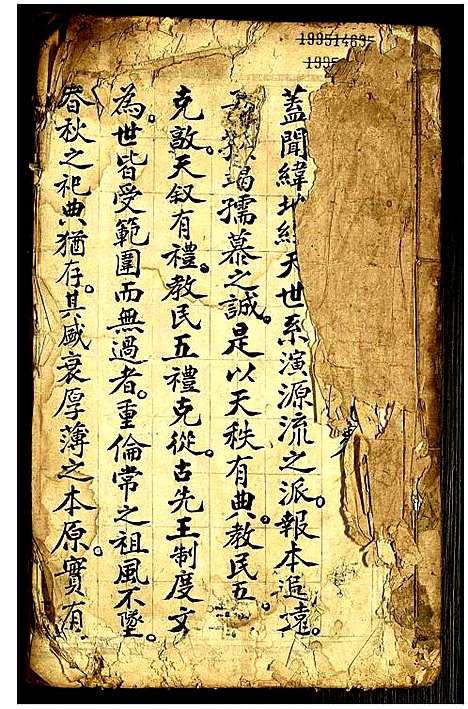 199514695
1995
蓋聞緯地經天世系演源流之派。報本追遠。
竭孺慕之誠。是以天秩有典。教民五。
克敦。天叙有禮。教民五禮克從。古先王制度文
為。世皆受範圍而無過者。重倫常之祖風不墜。
春秋之祀典猶存。其盛衰厚薄之本原。實有